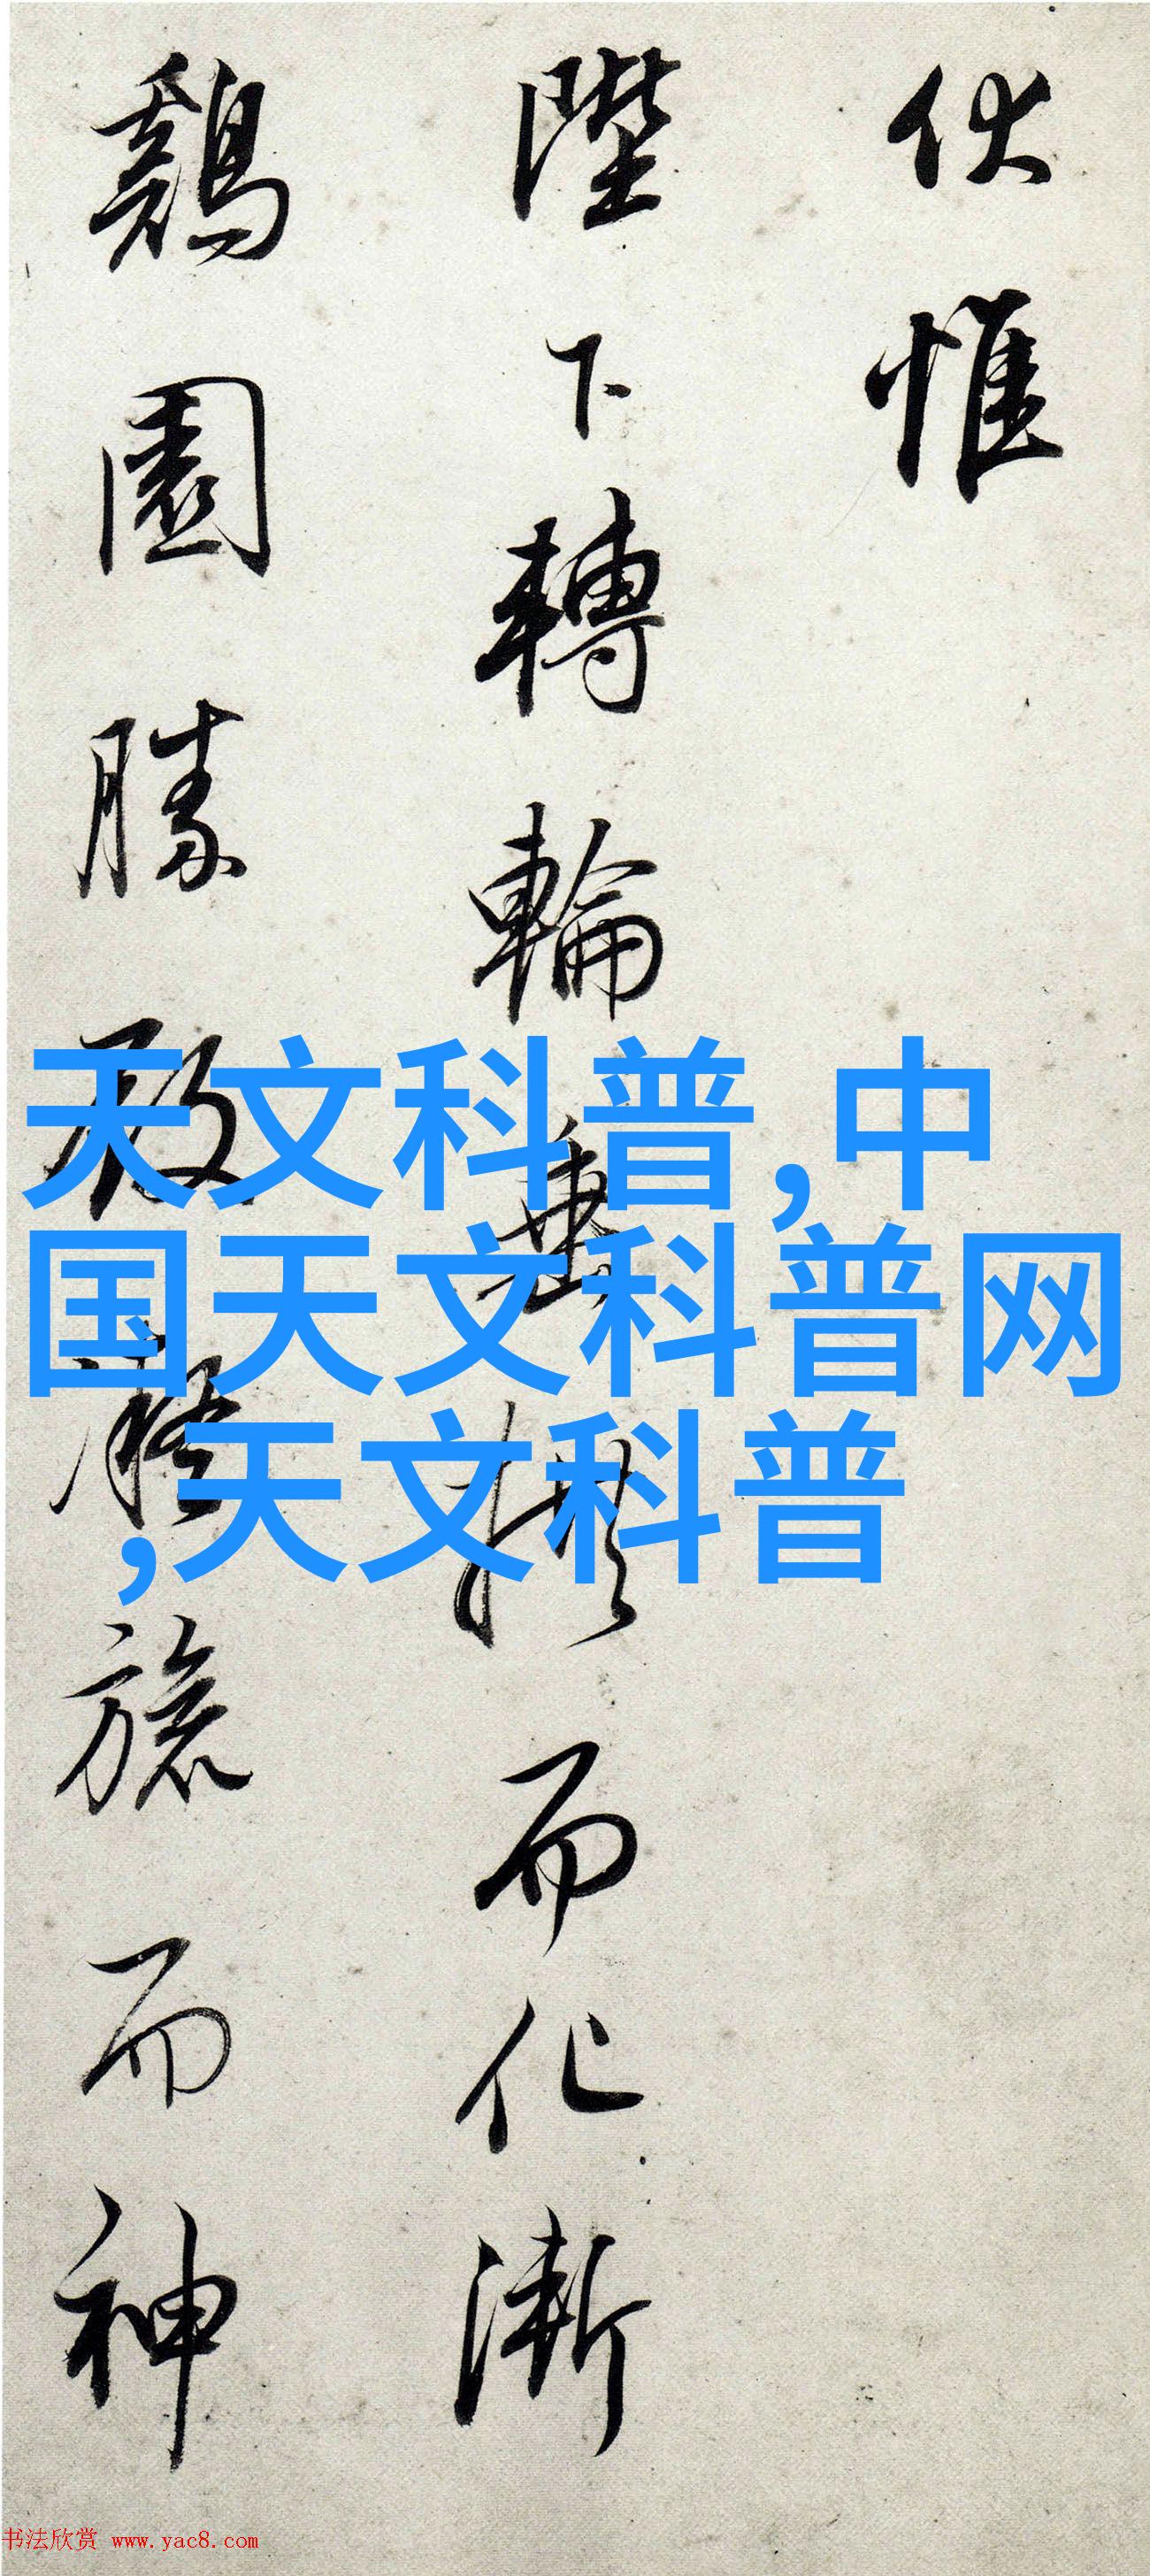 伏惟
陛下轉輪垂拱而化漸
鷄園勝殿凝旒而神
天文科普,中
国天文科普网
,天文科普
书法欣赏 www.yac8.com